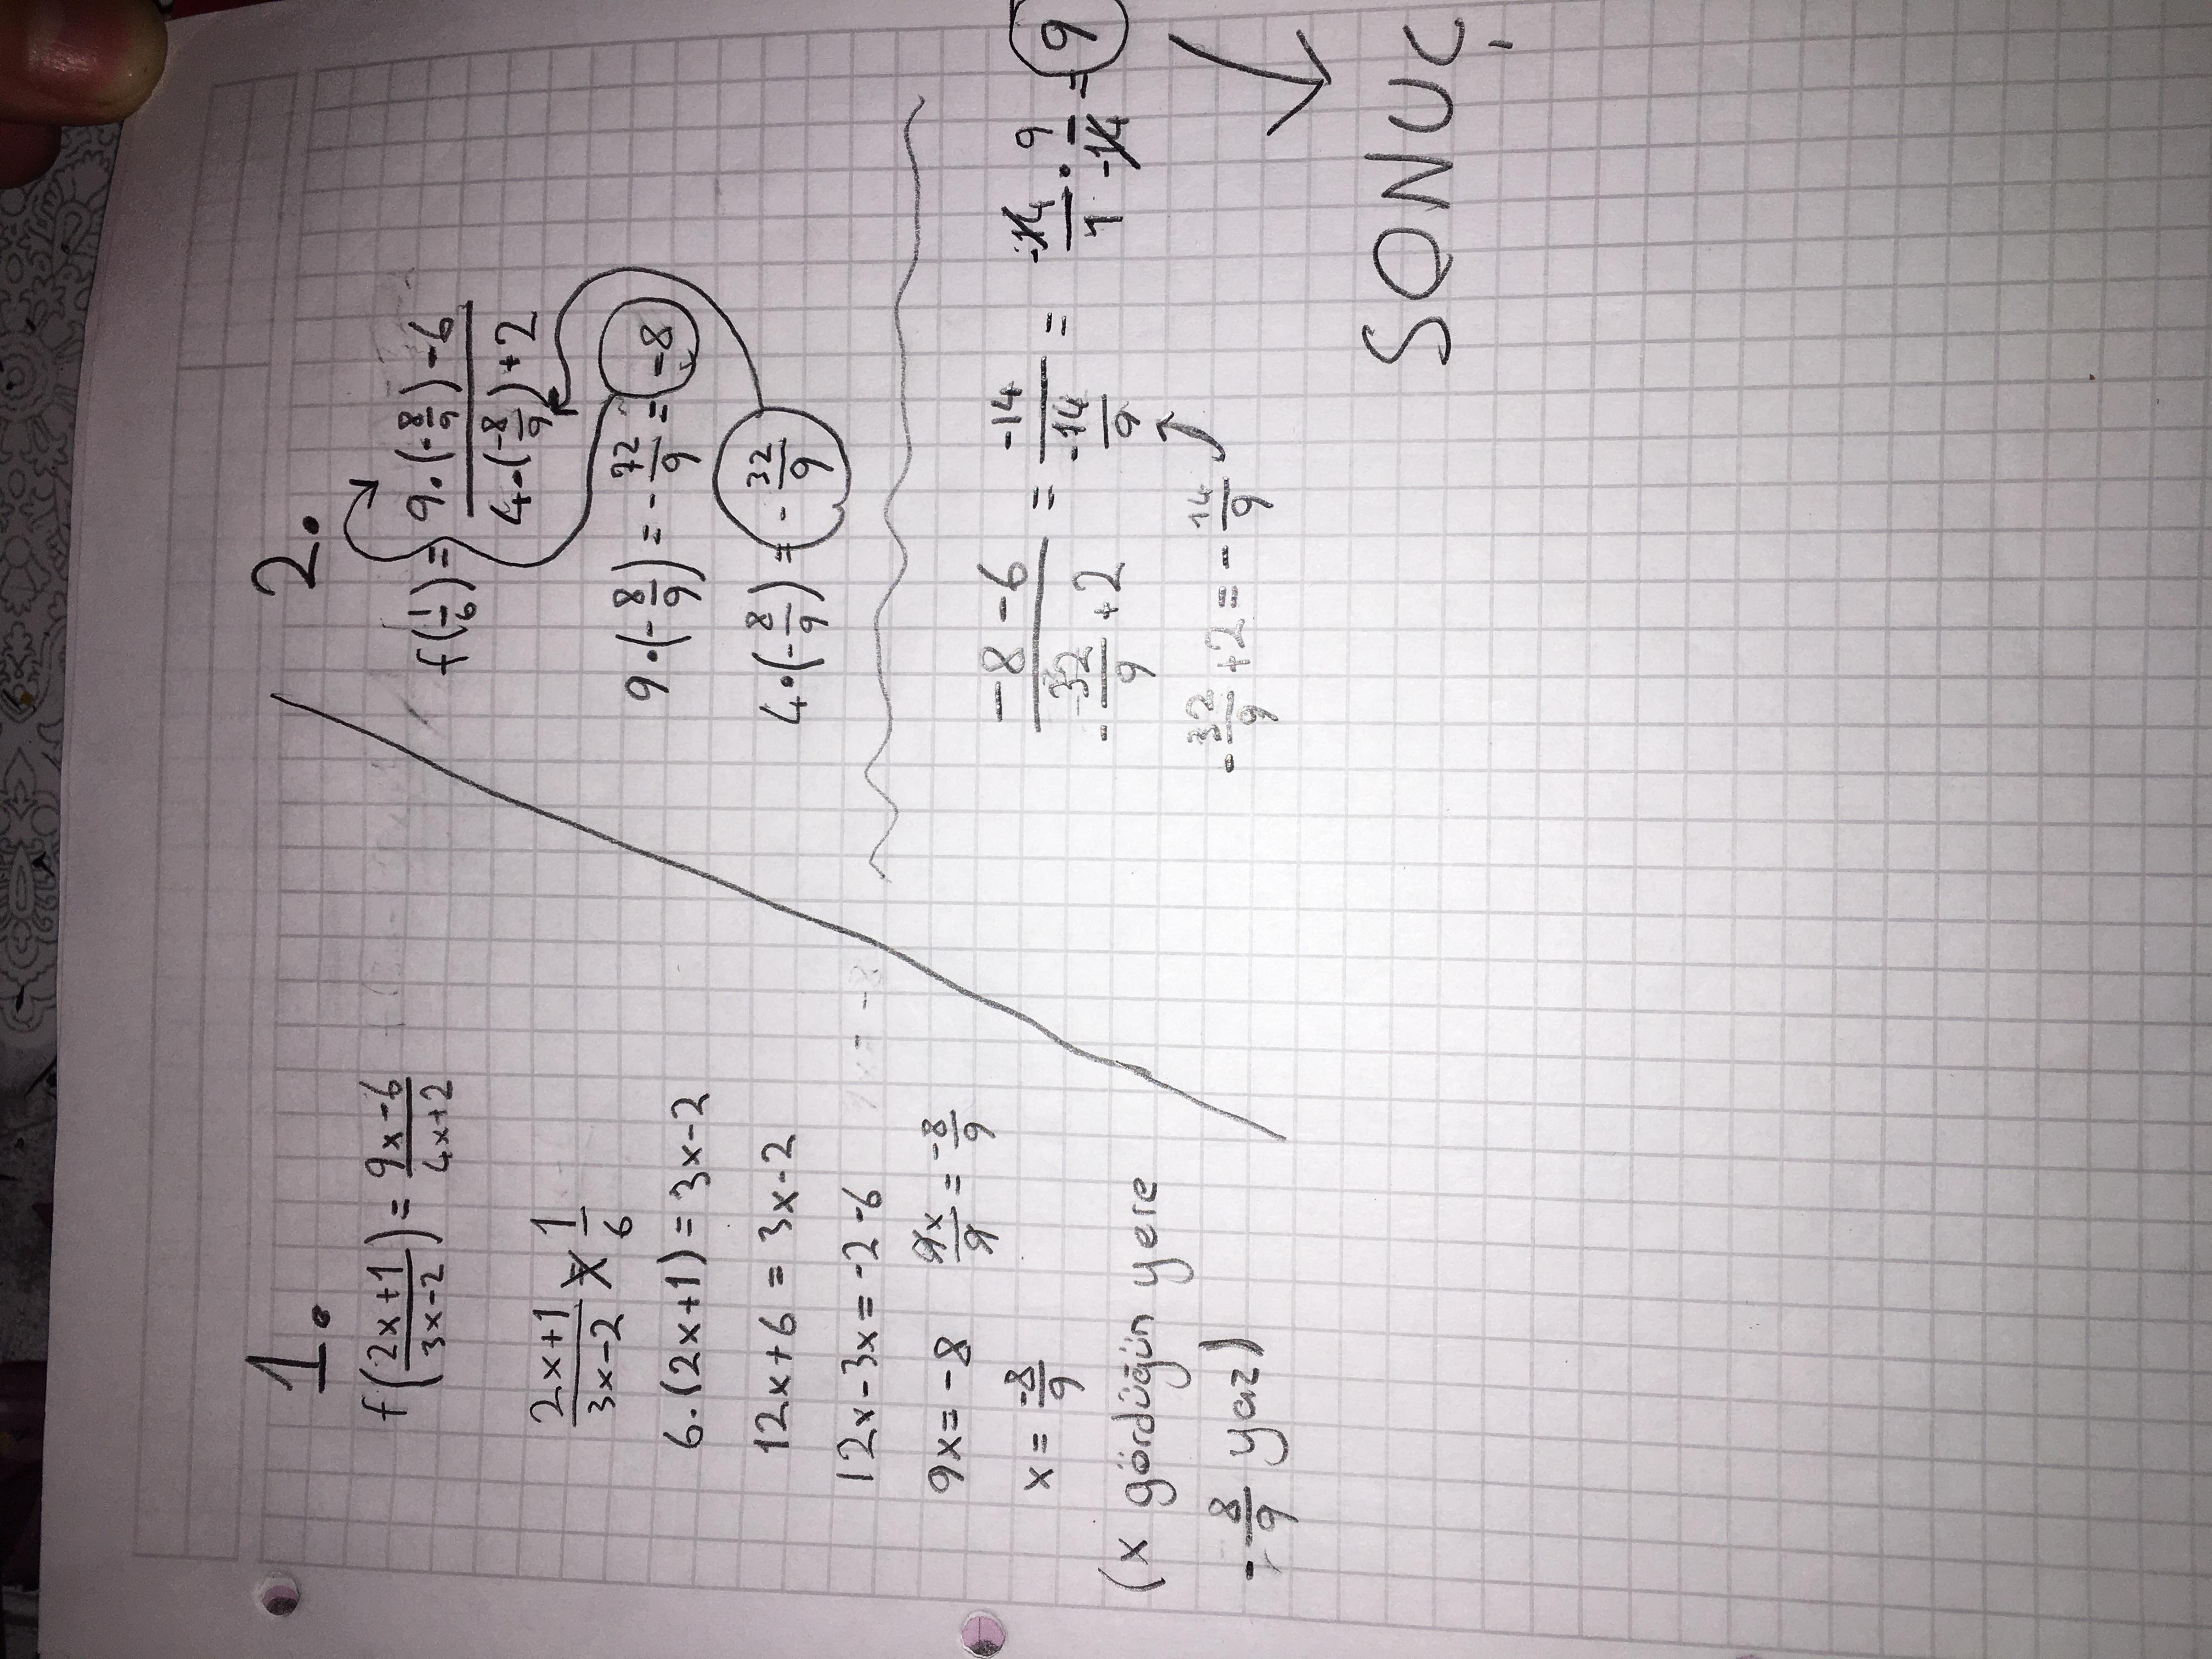 1.
f(2x+1/3x-2) = 9x-6/4x+2
2x+1/3x-2 = 1/6
6.(2x+1) = 3x-2
12x+6 = 3x-2
12x-3x = -2-6
9x = -8 9x/9 = -8/9
x = -8/9
(x gördüğün yere
-8/9 yaz)
2.
f(1/6) = 9.(-8/9)-6/4.(-8/9)+2
9.(-8/9) = -72/9 = -8
4.(-8/9) = -32/9
-8-6/-32/9+2 = -14/-14/9 = -14/1 . 9/-14 = 9
-32/9+2 = -14/9
SONUÇ